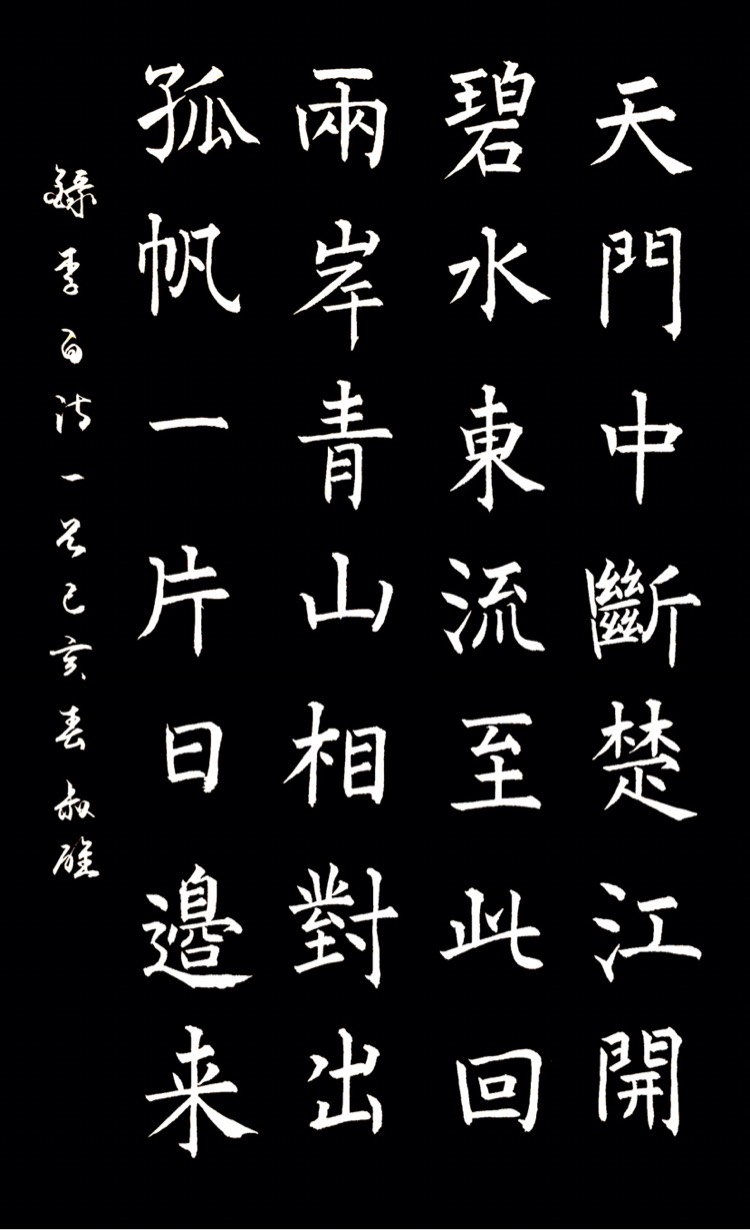 天門中斷楚江開
碧水東流至此回
兩岸青山相對出
孤帆一片日邊来
錄李白詩一首己亥春叔雄